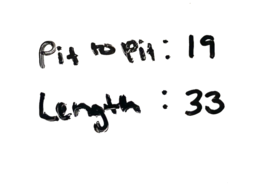 Pit to Pit : 19
Length : 33